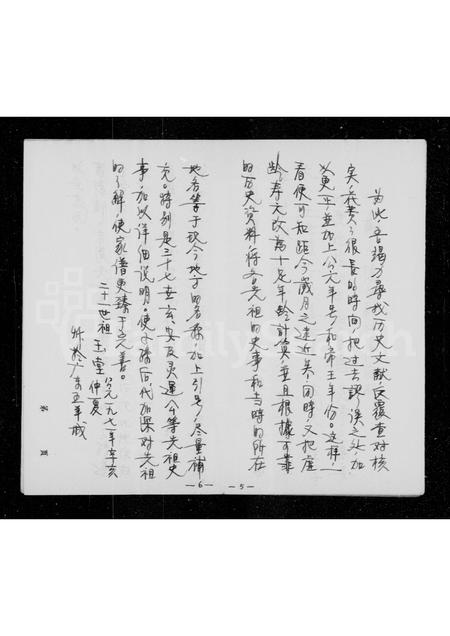 为此吾竭力尋找历史文献反覆查对核
实，花费了很長的時间，把过去誤误之外，加
以更正並加上公元年号和帝王年份。这样，
看便可知距今歲月之遠近矣，同時又把虚
龄寿元改為十足年龄計算，並且根據可靠
的历史資料，将吾先祖的史事和当時的所在
— 5 —
地名等于現今地方的名称，加上引号，尽量補
充。特别是三十七世玄、安及灵運公等先祖史
事，加以详细说明。使子孫后代加深对先祖
的了解，使家谱更臻于完善。
二十一世祖 玉堂 仲夏
公元一九七一年辛亥
於广东五羊城
— 6 —